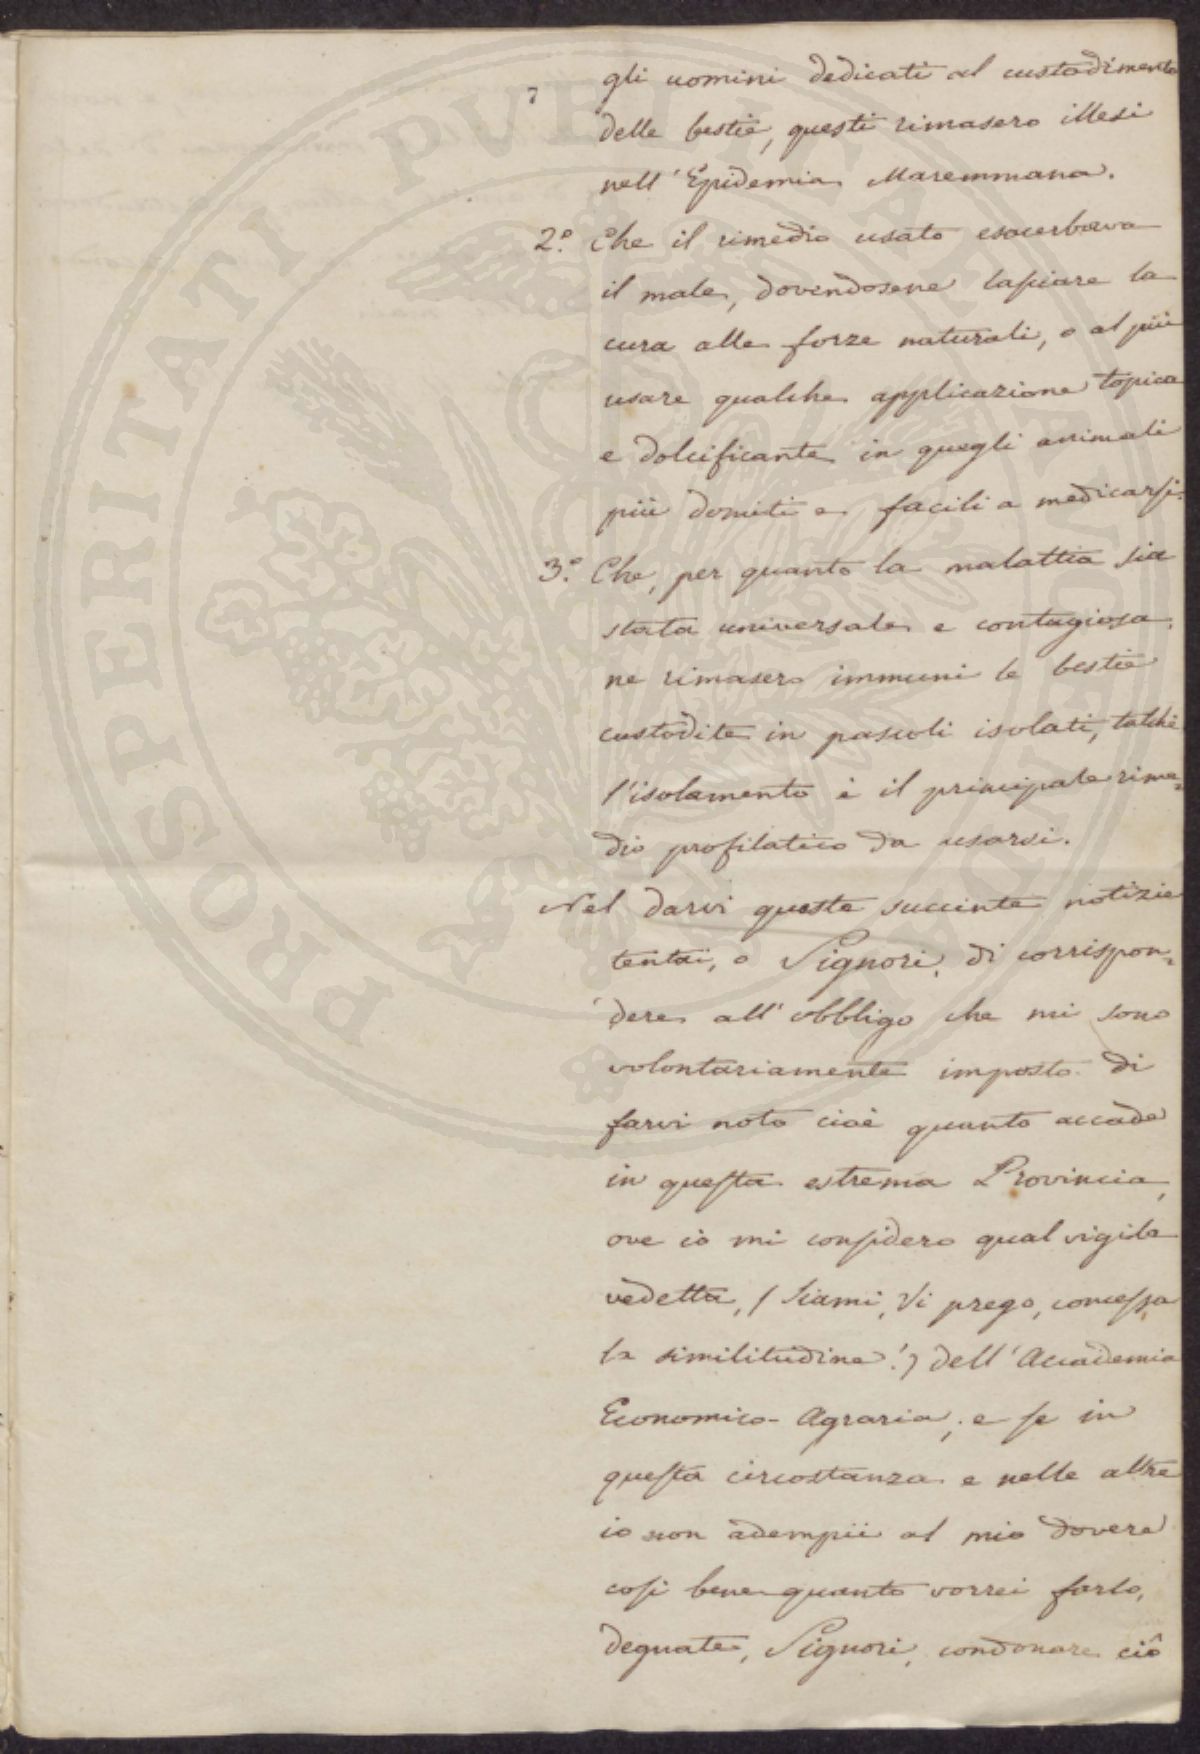 gli uomini dedicati al custodimento
delle bestie, questi rimasero illesi
nell'Epidemia Maremmana.
2.° Che il rimedio usato esacerbava
il male, dovendosene lasciare la
cura alle forze naturali, o al più
usare qualche applicazione topica
e dolcificante in quegli animali
più domiti e facili a medicarsi.
3.° Che, per quanto la malattia sia
stata universale e contagiosa,
ne rimasero immuni le bestie
custodite in pascoli isolati, talchè
l'isolamento è il principale rime=
dio profilatico da usarsi.
Nel darvi queste succinte notizie
tentai, o Signori, di corrispon=
dere all'obbligo che mi sono
volontariamente imposto di
farvi noto cioè quanto accade
in questa estrema Provincia,
ove io mi considero qual vigile
vedetta, (siami, Vi prego, concessa
la similitudine!) dell'Accademia
Economico-Agraria; e se in
questa circostanza e nelle altre
io non adempii al mio dovere
così bene quanto vorrei farlo,
degnate, Signori, condonare ciò
PROSPERITATI PUBLICAE AUGENDAE